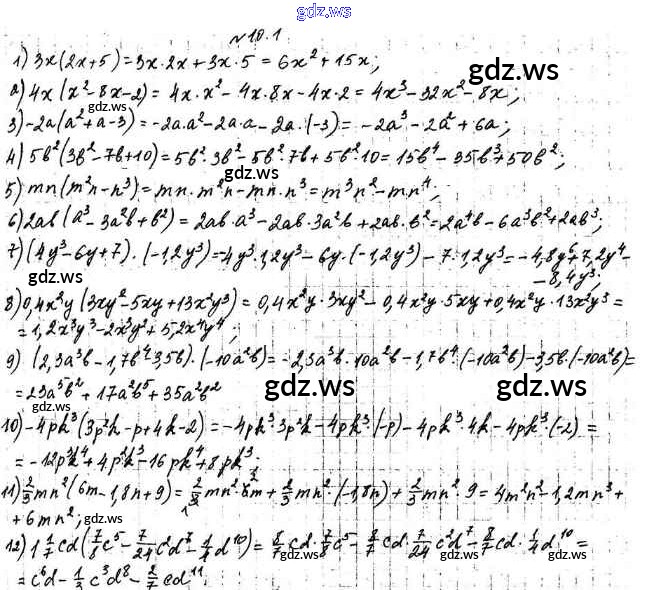 gdz.ws
№10.1
1) 3x(2x+5)=3x·2x+3x·5=6x²+15x;
gdz.ws
2) 4x(x²-8x-2)=4x·x²-4x·8x-4x·2=4x³-32x²-8x;
gdz.ws
3) -2a(a²+a-3)=-2a·a²-2a·a-2a·(-3)=-2a³-2a²+6a;
4) 5b²(3b²-7b+10)=5b²·3b²-5b²·7b+5b²·10=15b⁴-35b³+50b²;
gdz.ws
5) mn(m²n-n³)=mn·m²n-mn·n³=m³n²-mn⁴;
6) 2ab(a³-3a²b+b²)=2ab·a³-2ab·3a²b+2ab·b²=2a⁴b-6a³b²+2ab³;
7) (4y³-6y+7)·(-1,2y³)=-4y³·1,2y³-6y·(-1,2y³)-7·1,2y³=-4,8y⁶+7,2y⁴-
gdz.ws
-8,4y³;
8) 0,4x²y(3xy²-5xy+13x²y³)=0,4x²y·3xy²-0,4x²y·5xy+0,4x²y·13x²y³=
=1,2x³y³-2x³y²+5,2x⁴y⁴;
gdz.ws
9) (2,3a³b-1,7b⁴-3,5b)·(-10a²b)=-2,3a³b·10a²b-1,7b⁴·(-10a²b)-3,5b·(-10a²b)=
=23a⁵b²+17a²b⁵+35a²b²
gdz.ws gdz.ws
gdz.ws
10) -4pk³(3p²k-p+4k-2)=-4pk³·3p²k-4pk³·(-p)-4pk³·4k-4pk³·(-2)=
=-12p³k⁴+4p²k³-16pk⁴+8pk³.
gdz.ws
11) 2/3mn²(6m-1,8n+9)=2/3mn²·6m+2/3mn²·(-1,8n)+2/3mn²·9=4m²n²-1,2mn³+
+6mn²;
gdz.ws
12) 1 1/7cd(7/8c⁵-7/24c²d⁷-1/4d¹⁰)=8/7cd·7/8c⁵-8/7cd·7/24c²d⁷-8/7cd·1/4d¹⁰=
=c⁶d-1/3c³d⁸-2/7cd¹¹.
gdz.ws